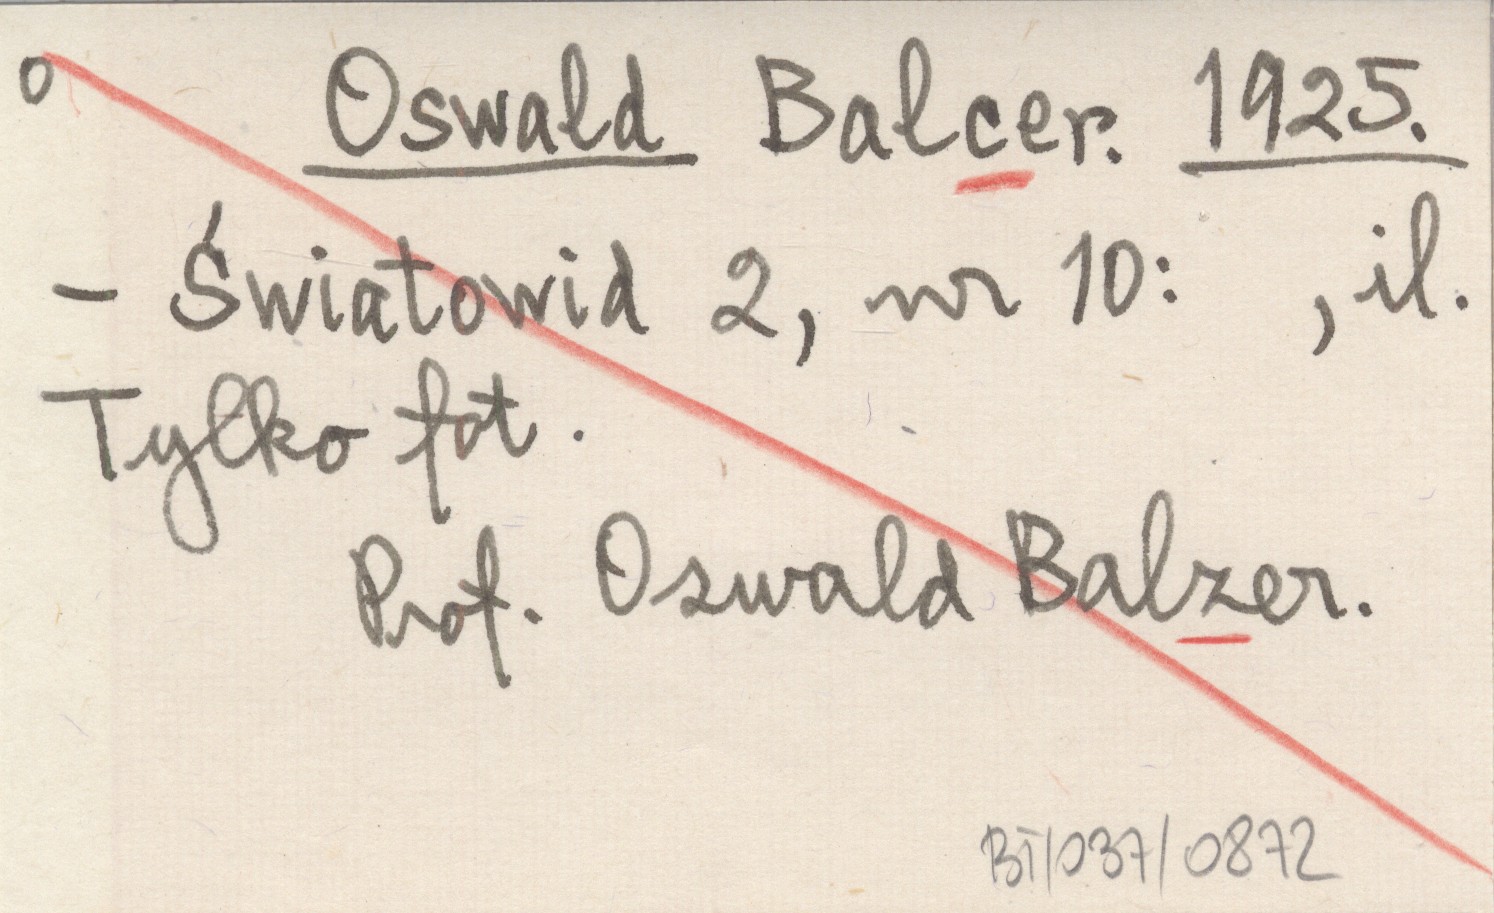 o Oswald Balcer. 1925.
- Światowid 2, nr 10: , il.
Tylko fot.
Prof. Oswald Balzer.
BT/037/0872